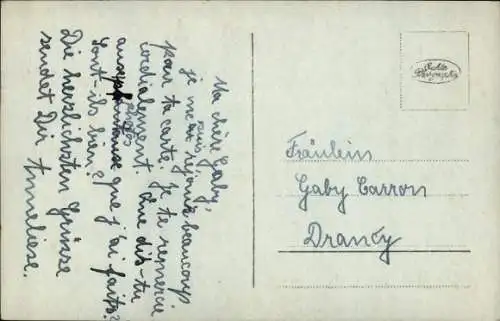 Ma chère Gaby,
je me suis réjouis beaucoup
par ta carte. Je te remercie
cordialement. Que dis-tu
aux photos que j'ai faits?
Sont-ils bien?
Die herzlichsten Grüsse
sendet Dir Anneliese.
Fräulein
Gaby Carron
Drancy